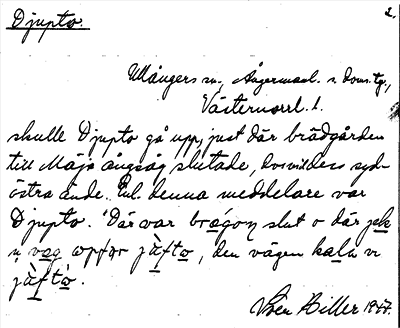 Djupto.
2.
Ullångers sn, Ångermanl. n. doms.tg.,
Västernorrl. l.
skulle Djupto gå upp, just där brädgården
till Mäja ångsåg slutade, dvs vid dess syd-
östra ände. Enl. denna meddelare var
Djupto. "Där var brægoɲ slut o där jek
ɲ væg uppför jùfto, den vägen kalla vi
jùfto.
Sven Hiller 1947.